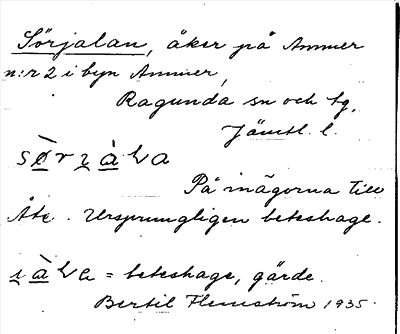 Sörjalan, åker på Ammer
n:r 2 i byn Ammer,
Ragunda sn och tg,
Jämtl. l.
På inägorna till
Åke. Ursprungligen beteshage.
= beteshage, gärde.
Bertil Flemström 1935.